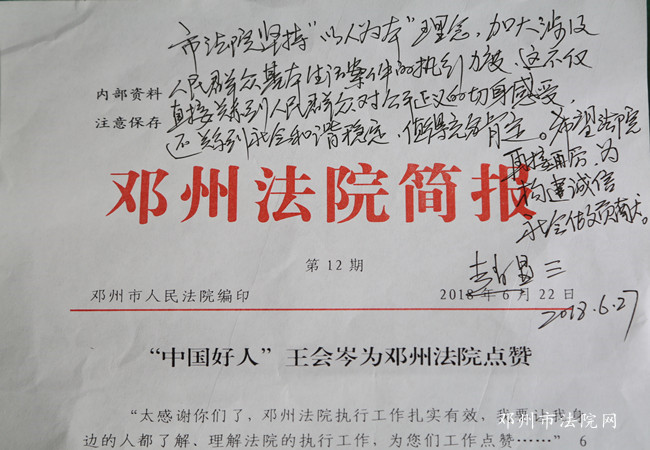 市法院坚持“以人为本”理念，加大涉及
人民群众基本生活案件的执行力度，这不仅
直接关系到人民群众对公平正义的切身感受，
还关系到社会和谐稳定，值得充分肯定。希望法院
再接再厉，为
构建诚信
社会做贡献。
内部资料
注意保存
邓州法院简报
第12期
三
邓州市人民法院编印
2018年6月22日
2018.6.27
“中国好人”王会岑为邓州法院点赞
“太感谢你们了，邓州法院执行工作扎实有效，我要让我身
边的人都了解、理解法院的执行工作，为您们工作点赞……”6
邓州市法院网